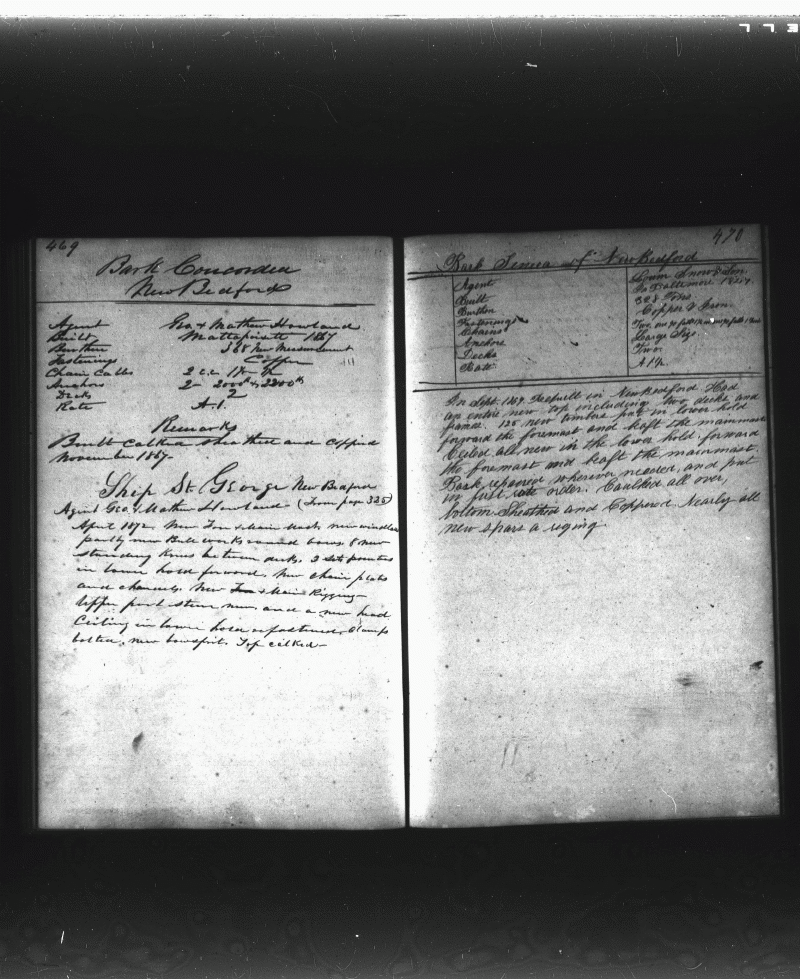 469
Bark Concordia
New Bedford
Agent Geo & Mathew Howland
Built Mattapoisett 1867
Burthen 368 New Measurement
Fastenings Copper
Chain Cables 2
Anchors 2 2000 lb & 2200 lb
Decks 2
Rate A.1.
Remarks
Built Calked Sheathed and Coppered
November 1867
Ship St. George New Bedford
Agent Geo. & Mathew Howland (From page 325)
April 1872. New Fore & Main Masts new windlass
partly new Bulwarks round bows. 8 new
standing Knees between decks. 2 sets pointers
in lower hold forward. New chain plates
and channels. New Fore & Main Rigging
Upper part stem new, and a new head
Ceiling in lower hold refastened, Clamps
bolted, new bowsprit. Top calked
470
Bark Seneca of New Bedford
Agent Snow & Son
Built In Baltimore
Burthen 328 Tons
Fastenings Copper & Iron
Chains Two, one
Anchors Large
Decks Two
Rate A 1½
In Sept. 1869. Rebuilt in New Bedford Had
an entire new top including two decks and
frames. 125 new timbers put in lower hold
forward the foremast and abaft the mainmast
Ceiled all new in the lower hold, forward
the foremast and abaft the mainmast.
Bark repaired wherever needed, and put
in first rate order. Caulked all over,
bottom Sheathed and Coppered. Nearly all
new spars & riging